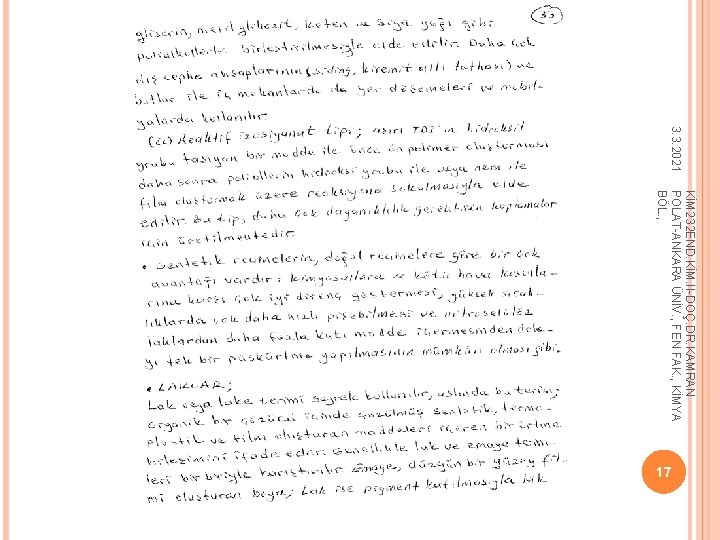 33
gliserin, metil glikozit, keten ve Soya yağı gibi
polialkollerle birleştirilmesiyle elde edilir. Daha çok
dış cephe ahşaplarının (siding, kiremit altı tahtası) ve
bütün ile iç mekanlarda da yer döşemeleri ve mobil-
yalarda kullanılır.
(ii) Reaktif izosiyanat tipi; aşırı TDI'ın hidroksil
grubu taşıyan bir madde ile önce ön polimer oluşturması
daha sonra poliollerin hidroksi grubu ile veya nem ile
film oluşturmak üzere reaksiyona sokulmasıyla elde
edilir. Bu tip, daha çok dayanıklılık gerektiren kaplamalar
için üretilmektedir.
• Sentetik reçinelerin, doğal reçinelere göre bir çok
avantajı vardır: kimyasallara ve kötü hava koşulla-
rına karşı çok iyi direnç göstermesi, yüksek sıcak-
lıklarda çok daha hızlı pişebilmesi ve nitroselüloz
laklardan daha fazla katı madde içermesinden dola-
yı tek bir püskürtme yapılmasının mümkün olması gibi.
• LAKLAR;
Lak veya lake terimi seyrek kullanılır, aslında bu terim;
organik bir çözücü içinde çözülmüş sentetik, termo-
plastik ve film oluşturan maddeleri içeren bir örtme
birleşimini ifade eder. Genellikle lak ve emaye terim-
leri birbiriyle karıştırılır. Emaye, düzgün bir yüzey fil-
mi oluşturan boya; Lak ise pigment katılmasıyla lak
3.3.2021
KİM 232 END.KİM.II-DOÇ.DR.KAMRAN
POLAT-ANKARA ÜNİV., FEN FAK., KİMYA
BÖL.,
17